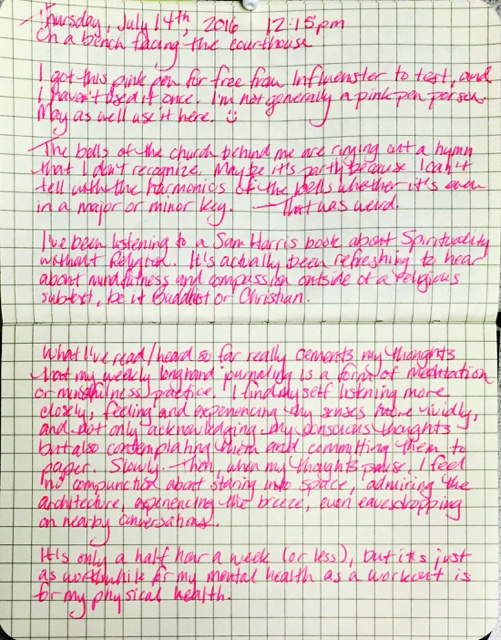 Thursday, July 14th, 2016 12:15pm
On a bench facing the courthouse
I got this pink pen for free from Influenster to test, and
I haven't used it once. I'm not generally a pink pen person.
May as well use it here. :)
The bells of the church behind me are ringing out a hymn
that I don't recognize. Maybe it's partly because I can't
tell with the harmonics of the bells whether it's even
in a major or minor key. — That was weird.
I've been listening to a Sam Harris book about Spirituality
without Religion. It's actually been refreshing to hear
about mindfulness and compassion outside of a religious
subtext, be it Buddhist or Christian.
What I've read/heard so far really cements my thoughts
that my weekly longhand journaling is a form of meditation
or mindfulness practice. I find myself listening more
closely, feeling and experiencing my senses more vividly,
and not only acknowledging my conscious thoughts
but also contemplating them and committing them to
paper. Slowly. Then, when my thoughts pause, I feel
no compunction about staring into space, admiring the
architecture, experiencing the breeze, even eavesdropping
on nearby conversations.
It's only a half hour a week (or less), but it's just
as worthwhile for my mental health as a workout is
for my physical health.